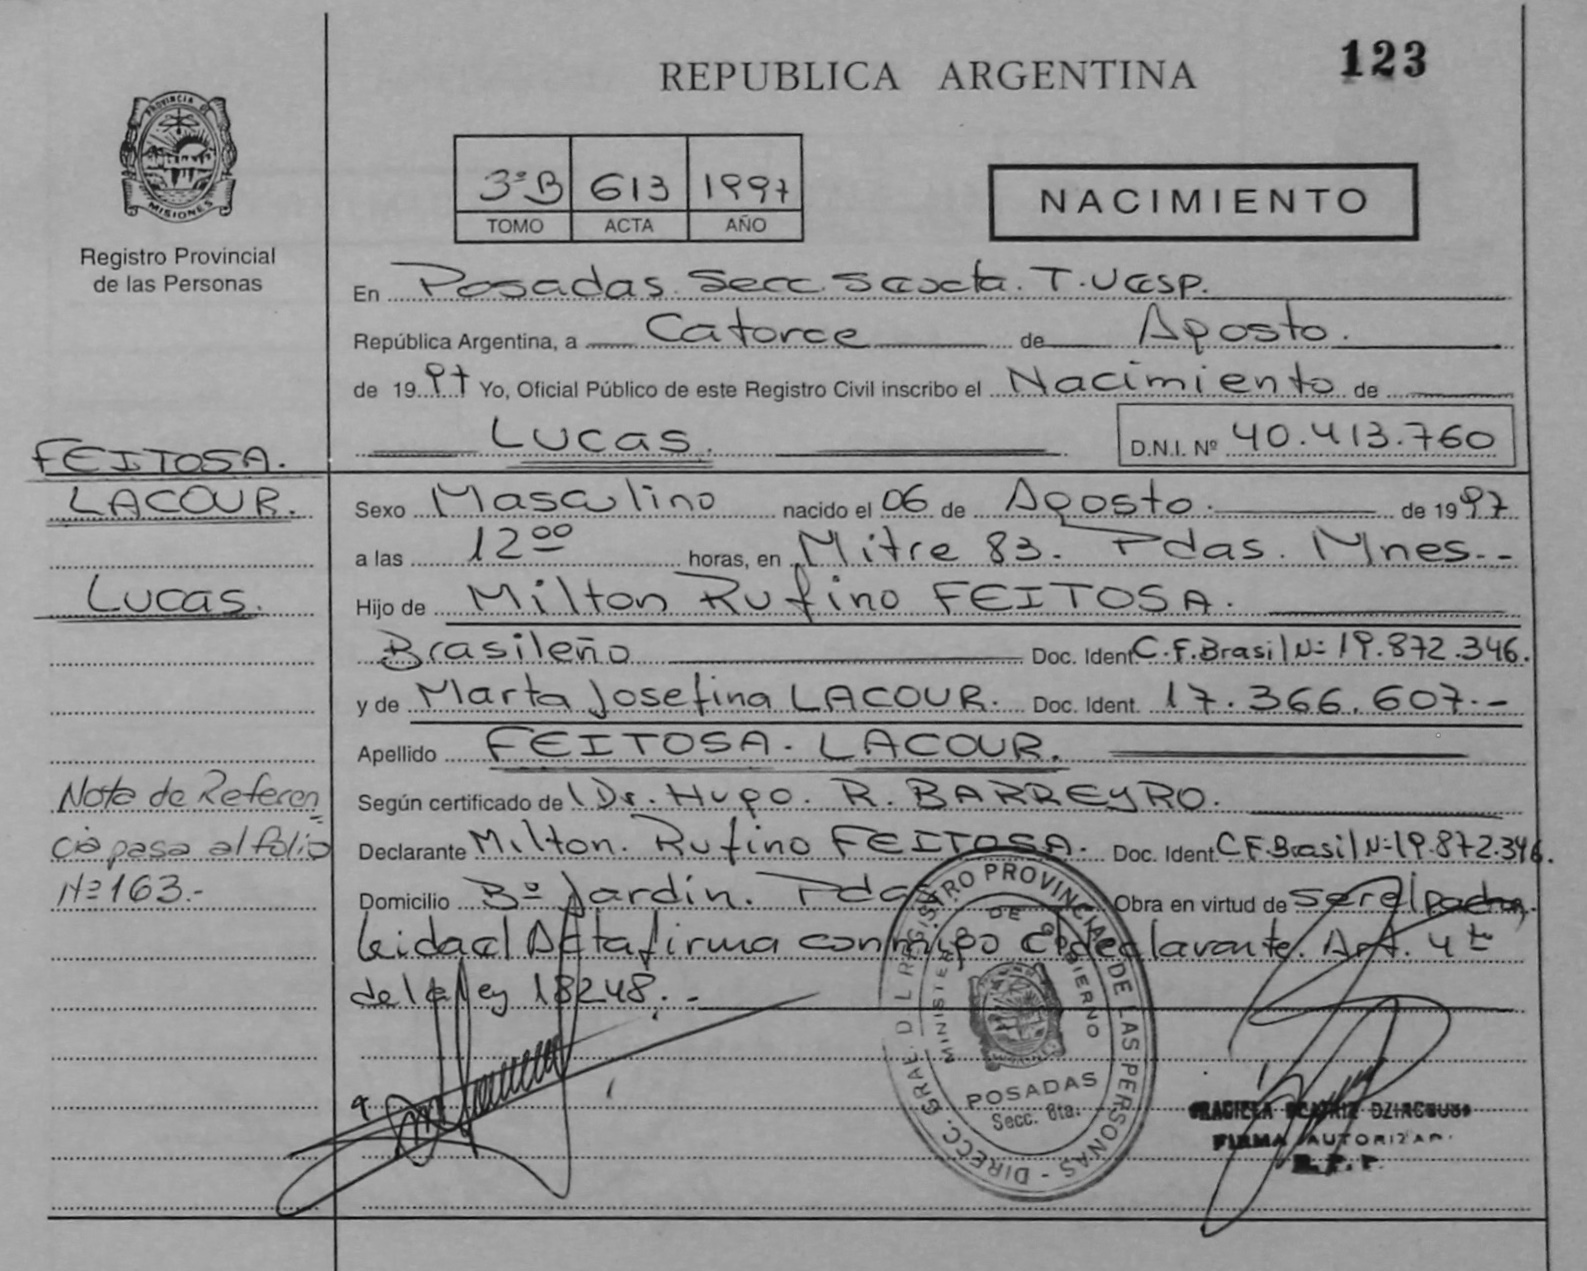 123
REPUBLICA ARGENTINA
PROVINCIA DE
MISIONES
Registro Provincial
de las Personas
3ºB 613 1997
TOMO ACTA AÑO
NACIMIENTO
En Posadas. Secc. Sexta. T. U
República Argentina, a Catorce de Agosto.
de 1997 Yo, Oficial Público de este Registro Civil inscribo el Nacimiento de
Lucas.
D.N.I. Nº 40.413.760
FEITOSA.
LACOUR.
Lucas.
Sexo Masculino nacido el 06 de Agosto. de 1997
a las 12ºº horas, en Mitre 83. Pdas. Mnes.-
Hijo de Milton Rufino FEITOSA.
Brasileño Doc. Ident. C.F.Brasil Nº 19.872.346.
y de Marta Josefina LACOUR. Doc. Ident. 17.366.607.-
Apellido FEITOSA. LACOUR.
Según certificado de Dr. Hugo. R. BARREYRO.
Declarante Milton. Rufino FEITOSA. Doc. Ident. C.F.Brasil Nº 19.872.346.
Domicilio Bº Jardín. Pdas Obra en virtud de ser el padre.
Leida el Acta firma conmigo el declarante. Art. 4º
de la Ley 18248.-
Nota de Referen
cia pasa al folio
Nº 163.-
DIRECC. GRAL. DEL REGISTRO PROVINCIAL DE LAS PERSONAS
MINISTERIO DE GOBIERNO
POSADAS
Secc. 6ta.
GRACIELA BEATRIZ
FIRMA AUTORIZAD.
R.P.P.